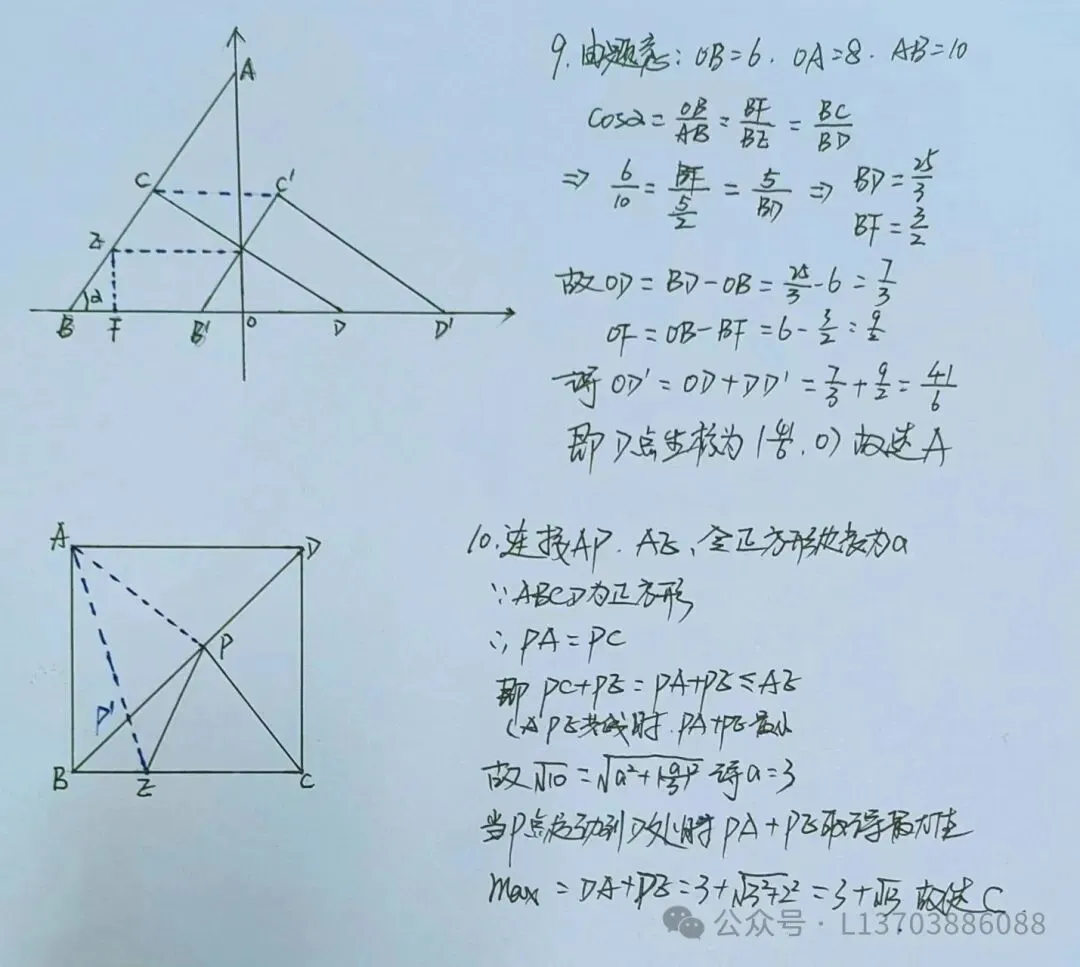 A
C
C'
E
α
B
F
B'
O
D
D'
9. 由题意: OB=6. OA=8. AB=10
cosα = OB/AB = BF/BE = BC/BD
⇒ 6/10 = BF/(5/2) = 5/BD ⇒ BD = 25/3
BF = 3/2
故OD = BD-OB = 25/3 - 6 = 7/3
OF = OB-BF = 6 - 3/2 = 9/2
得 OD' = OD+DD' = 7/3 + 9/2 = 41/6
即D点坐标为 (41/6, 0) 故选A
A
D
P
P'
B
E
C
10. 连接AP. AE, 令正方形边长为a
∵ABCD为正方形
∴PA=PC
即 PC+PE = PA+PE ≤ AE
(A P E共线时. PA+PE最小
故√10 = √(a²+(a/3)²) 得a=3
当P点运动到D处时 PA+PE取得最大值
Max = DA+DE = 3+√(3²+2²) = 3+√13 故选C
公众号 · L13703886088